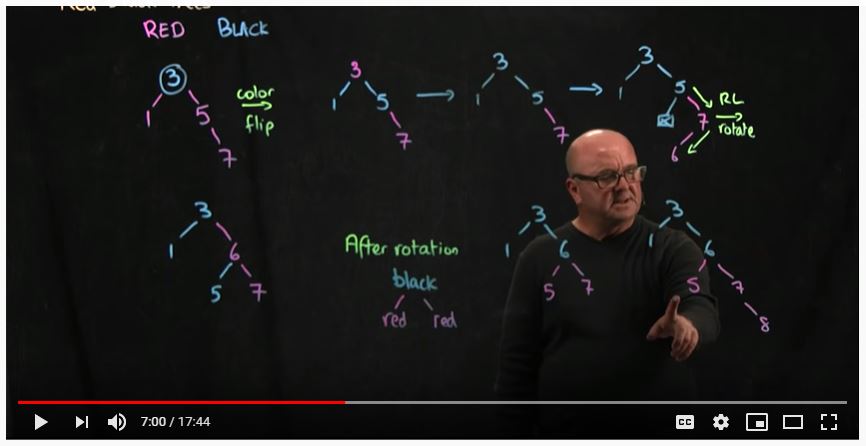 RED BLACK
3
1 5
7
color
flip
3
1 5
7
3
1 5
7
3
1 5
7
6
RL
rotate
3
1 6
5 7
After rotation
black
red red
3
1 6
5 7
3
1 6
5 7
8
7:00 / 17:44
CC